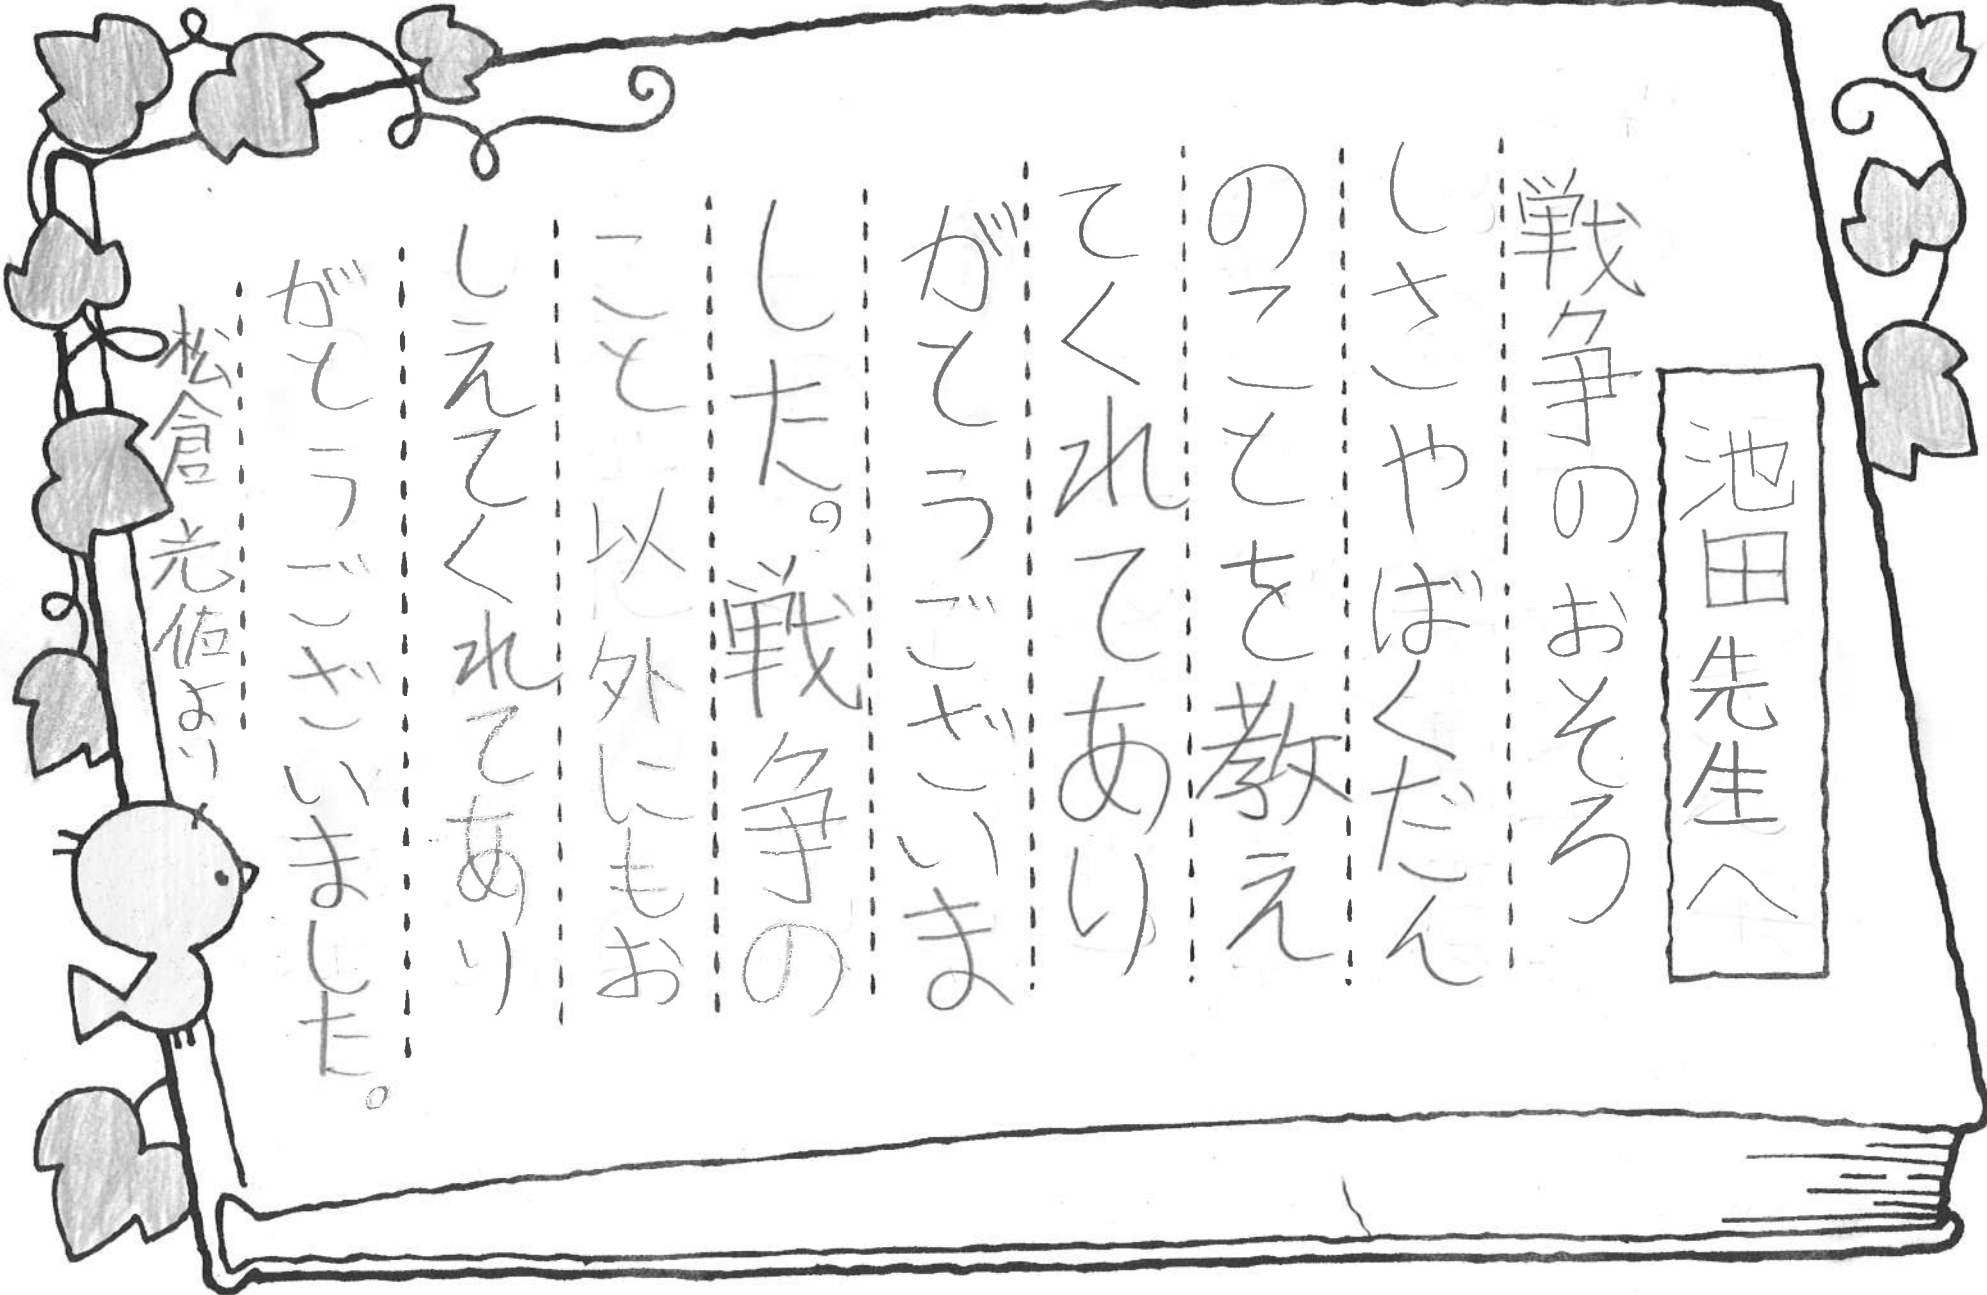 池田先生へ
戦争のおそろ
しさやばくだん
のことを教え
てくれてあり
がとうございま
した。戦争の
こと以外にもお
しえてくれてあり
がとうございました。
松倉光佑より